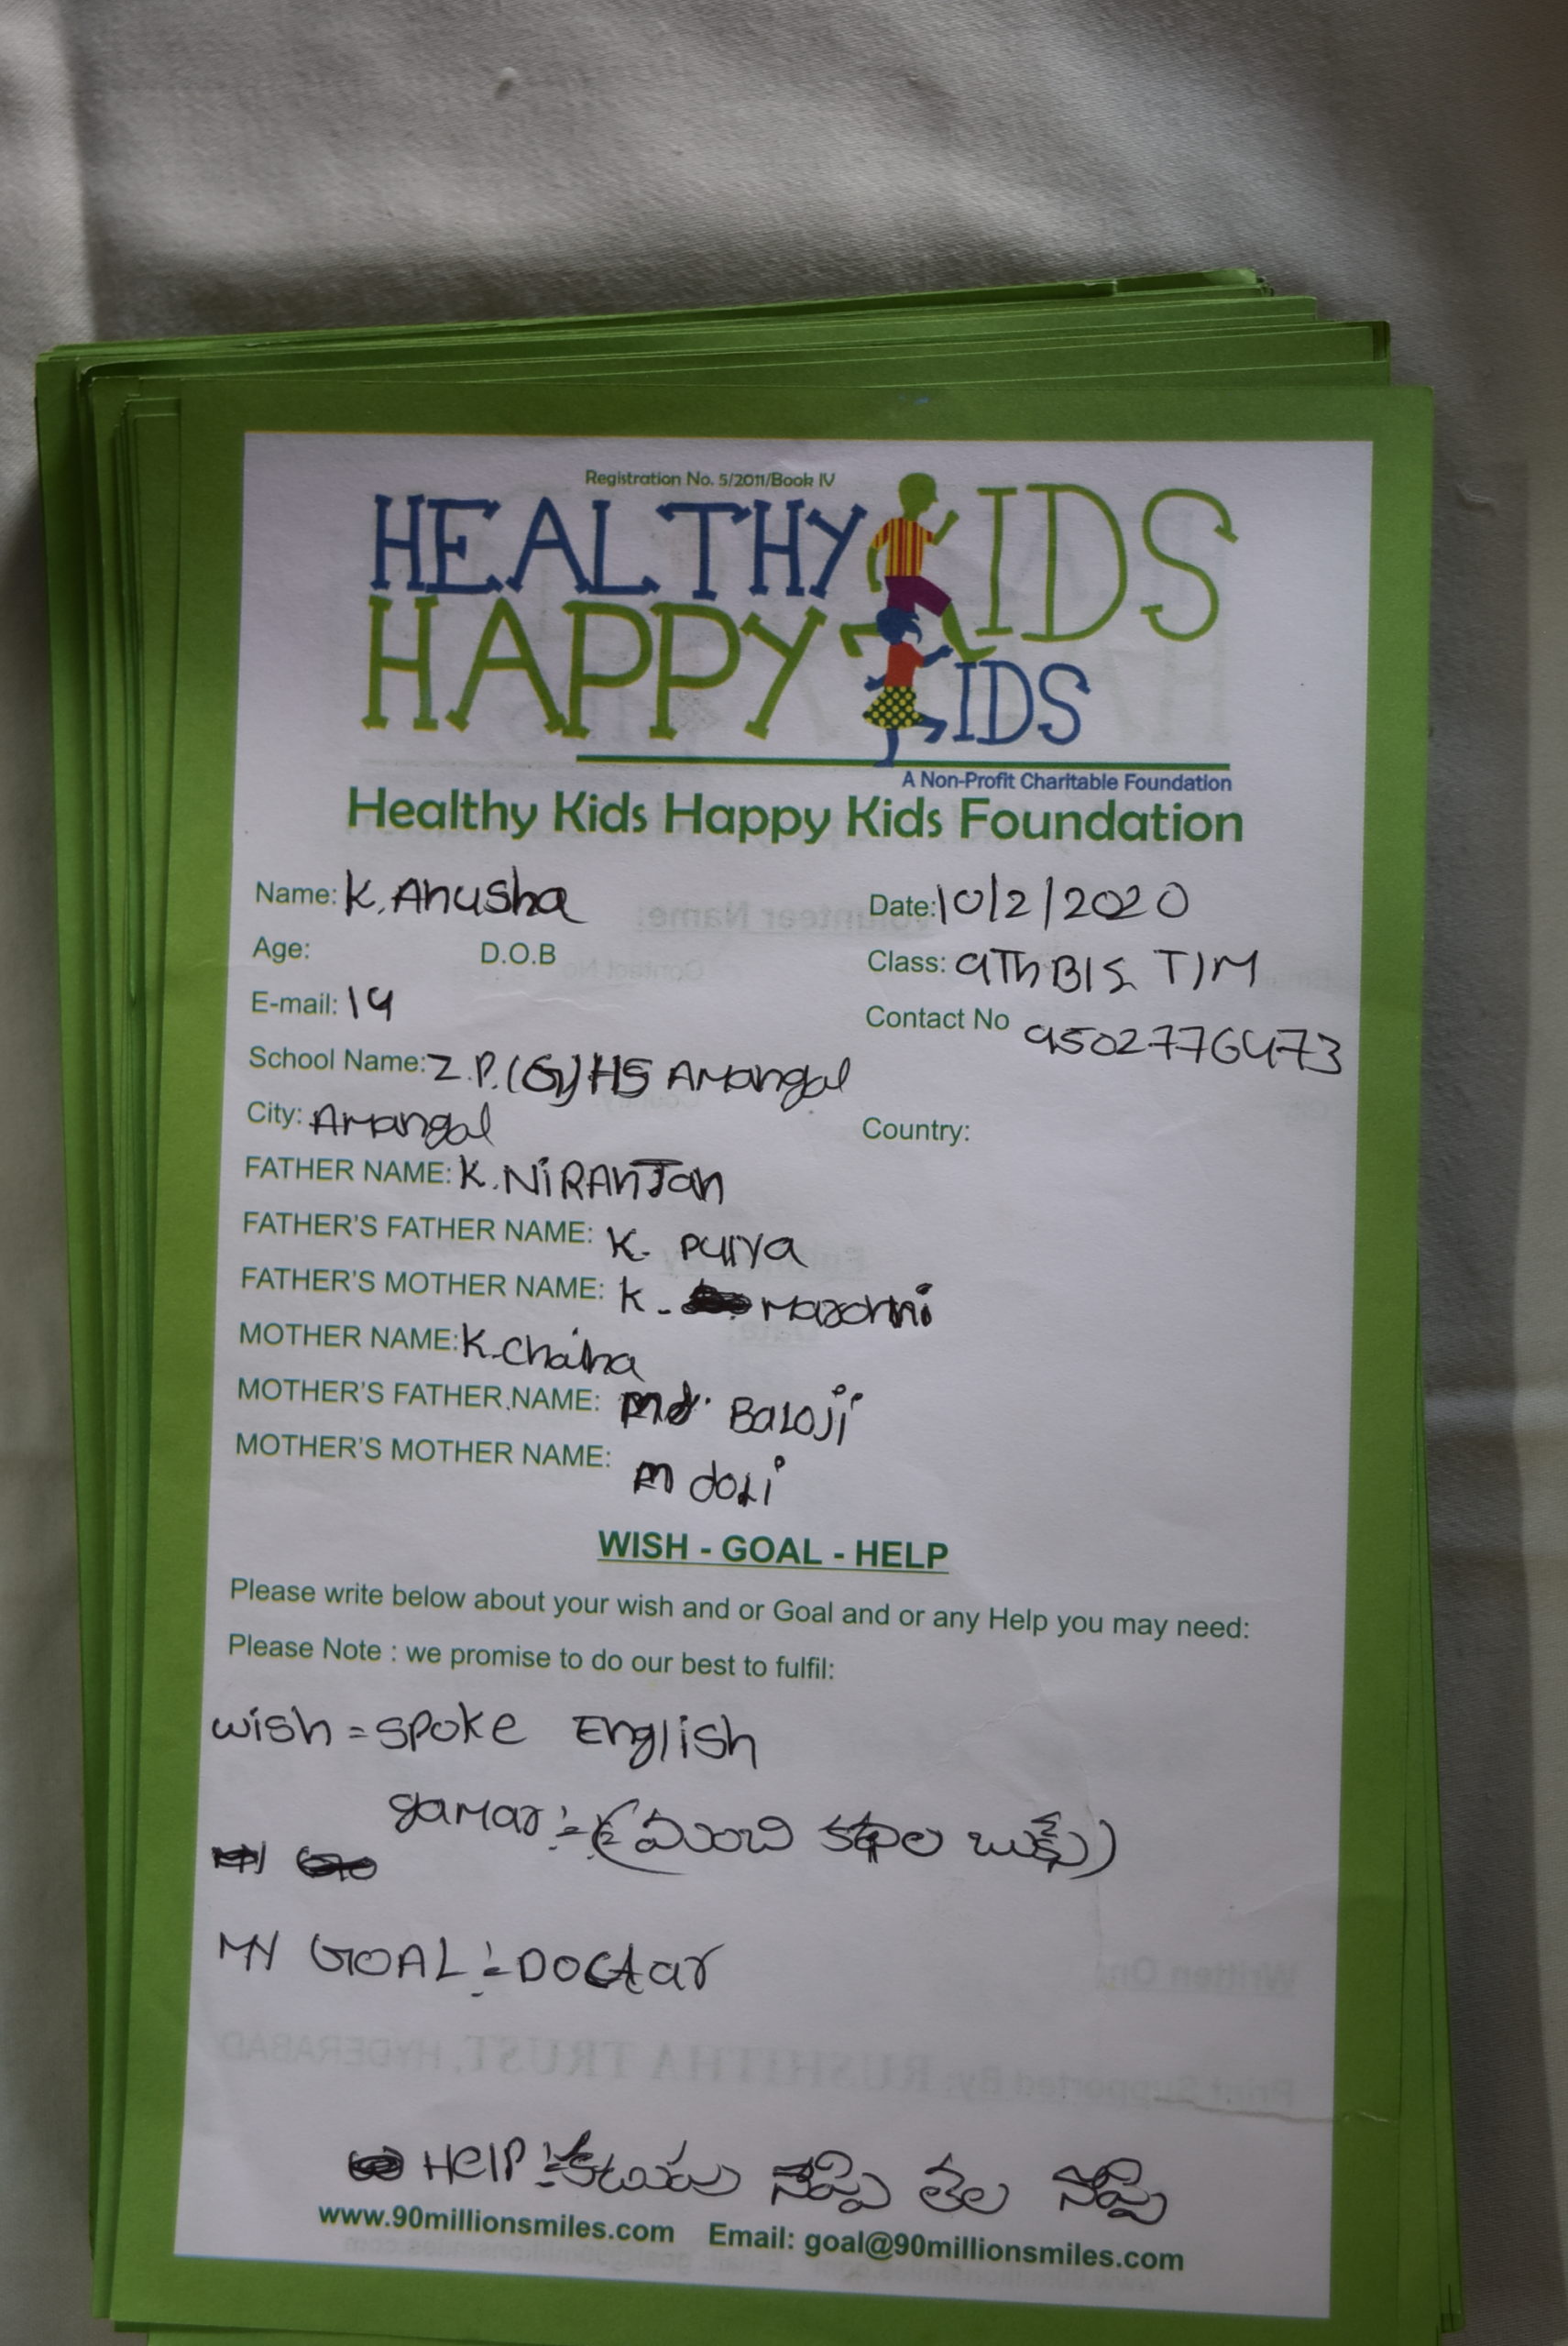 Registration No. 5/2011/Book IV
HEALTHY KIDS
HAPPY KIDS
A Non-Profit Charitable Foundation
Healthy Kids Happy Kids Foundation
Name: K. Anusha Date: 10/2/2020
Age: D.O.B Class: 9Th BIS TIM
E-mail: 14 Contact No 9502776473
School Name: Z.P.(G)HS Amangal
City: Amangal Country:
FATHER NAME: K. NiRANJan
FATHER'S FATHER NAME: K.
FATHER'S MOTHER NAME: K.
MOTHER NAME: K.
MOTHER'S FATHER NAME: Baloji
MOTHER'S MOTHER NAME: M
WISH - GOAL - HELP
Please write below about your wish and or Goal and or any Help you may need:
Please Note : we promise to do our best to fulfil:
wish = spoke English
gamar := (మంచి కథల బుక్స్)
MY GOAL := Doctar
HelP := కడుపు నొప్పి తల నొప్పి
www.90millionsmiles.com Email: goal@90millionsmiles.com